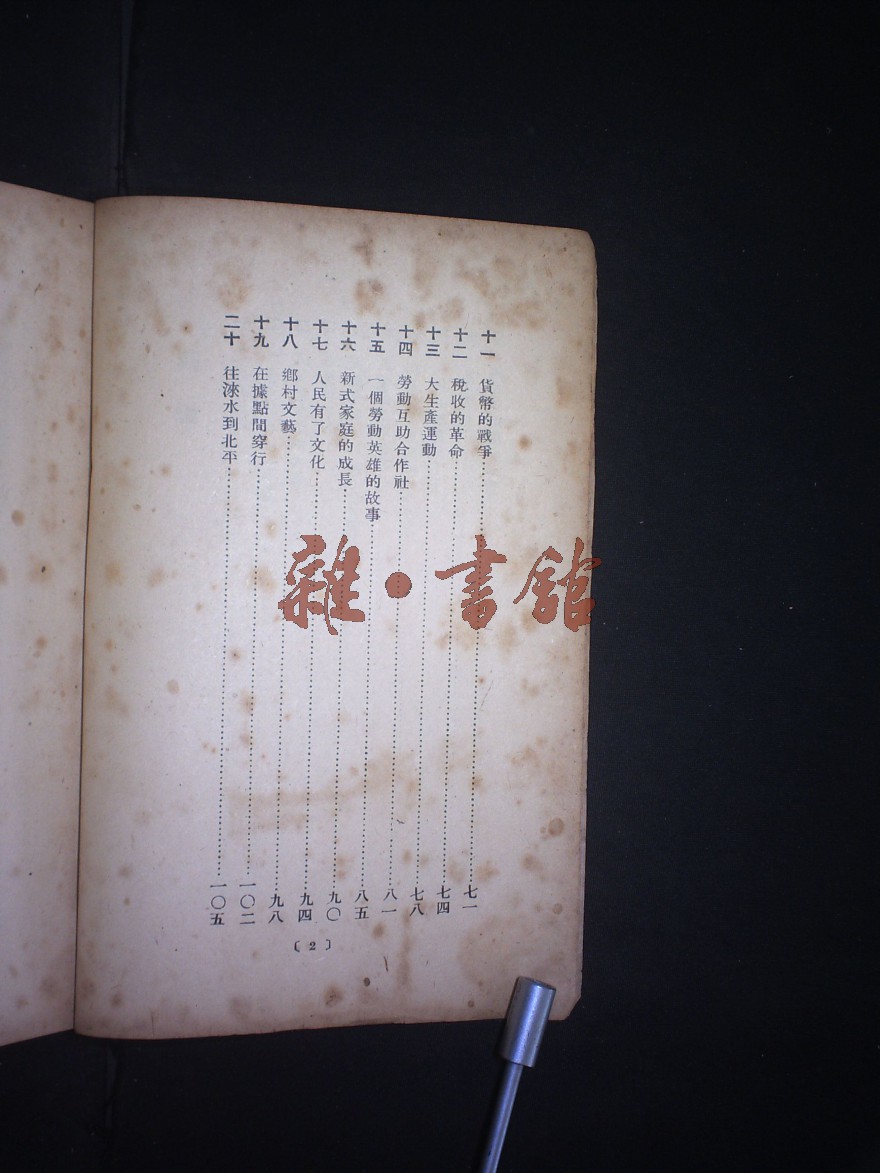 十一 貨幣的戰爭……七一
十二 稅收的革命……七四
十三 大生產運動……七八
十四 勞動互助合作社……八一
十五 一個勞動英雄的故事……八五
十六 新式家庭的成長……九〇
十七 人民有了文化……九四
十八 鄉村文藝……九八
十九 在據點間穿行……一〇二
二十 往淶水到北平……一〇五
〔2〕
雜·書館